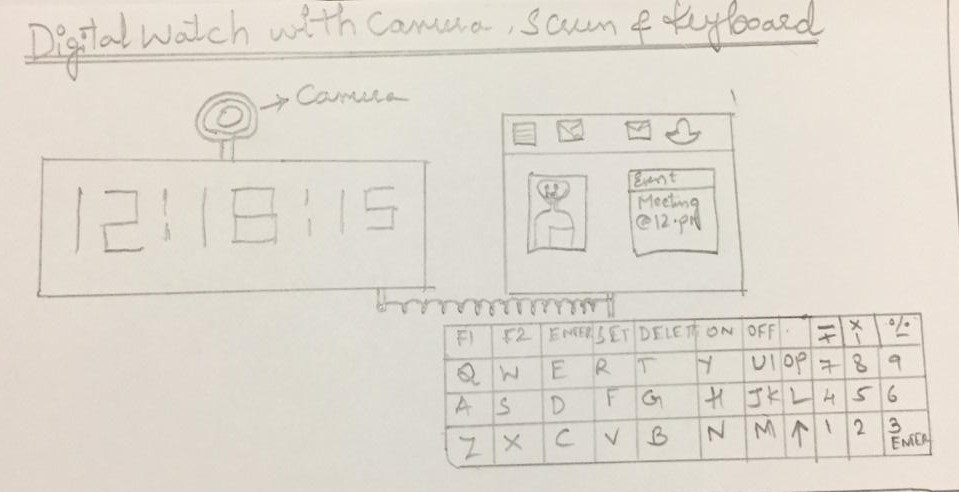 Digital Watch with Camera, Screen & Keyboard
→ Camera
12:18:15
Event
Meeting
@12.pm
F1 F2 ENTER SET DELETE ON OFF . = + × - %
Q W E R T Y U I O P 7 8 9
A S D F G H J K L 4 5 6
Z X C V B N M ↑ 1 2 3
ENTER